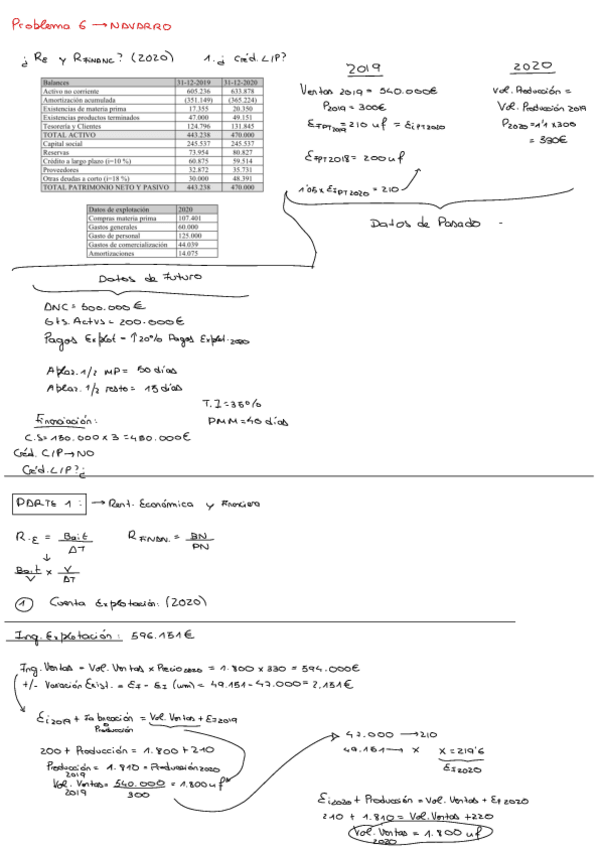 Problema 6 → NAVARRO
¿ RE y RFINANC? (2020) 1.¿ Créd. L/P?
Balances 31-12-2019 31-12-2020
Activo no corriente 605.236 633.878
Amortización acumulada (351.149) (365.224)
Existencias de materia prima 17.355 20.350
Existencias productos terminados 47.000 49.151
Tesorería y Clientes 124.796 131.845
TOTAL ACTIVO 443.238 470.000
Capital social 245.537 245.537
Reservas 73.954 80.827
Crédito a largo plazo (i=10 %) 60.875 59.514
Proveedores 32.872 35.731
Otras deudas a corto (i=18 %) 30.000 48.391
TOTAL PATRIMONIO NETO Y PASIVO 443.238 470.000
Datos de explotación 2020
Compras materia prima 107.401
Gastos generales 60.000
Gasto de personal 125.000
Gastos de comercialización 44.039
Amortizaciones 14.075
2019
Ventas 2019 = 540.000€
P2019 = 300€
EfPT2019 = 210 uf = EiPT2020
EfPT2018 = 200 uf
1'05 x EfPT2020 = 210
2020
Vol. Producción =
Vol. Producción 2019
P2020 = 1'1 x 300
= 330€
Datos de Pasado
Datos de Futuro
ANC = 500.000€
Gts. Actvs = 200.000€
Pagos Explot = ↑20% Pagos Explot. 2020
Aplaz. 1/2 MP = 50 días
Aplaz. 1/2 resto = 15 días
T.I = 35%
Financiación: PMM = 40 días
C.S = 150.000 x 3 = 450.000€
Créd. C/P → NO
Créd. L/P?¿
PARTE 1: → Rent. Económica y Financiera
R.E = Bait / AT RFINAN. = BN / PN
↓
Bait / V x V / AT
① Cuenta Explotación: (2020)
Ing. Explotación: 596.151€
Ing. Ventas = Vol. Ventas x Precio2020 = 1.800 x 330 = 594.000€
+/- Variación Exist. = Ef - Ei (um) = 49.151 - 47.000 = 2.151€
Ei2019 + Fabricación = Vol. Ventas + Ef2019
Producción
200 + Producción = 1.800 + 210
Producción 2019 = 1.810 = Producción 2020
Vol. Ventas 2019 = 540.000 / 300 = 1.800 uf
47.000 → 210
49.151 → x x = 219'6
Ef2020
Ei2020 + Producción = Vol. Ventas + Ef2020
210 + 1.810 = Vol. Ventas + 220
Vol. Ventas 2020 = 1.800 uf